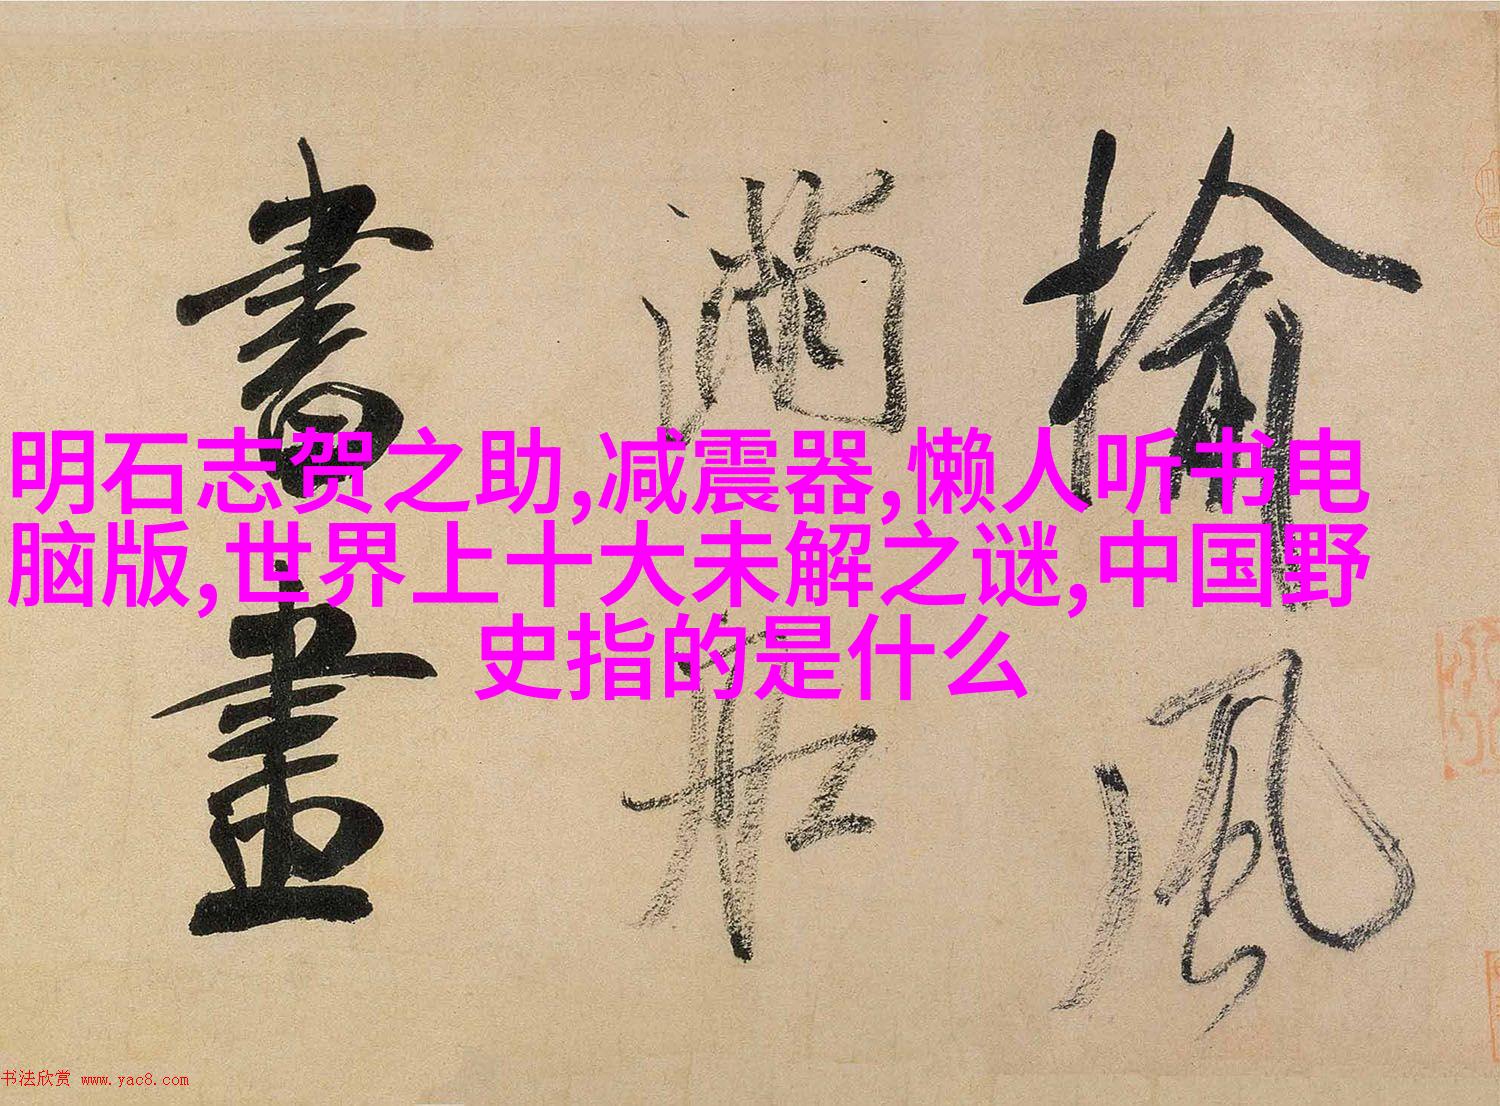 榆風
滿船
書畫
明石志贺之助,减震器,懒人听书电
脑版,世界上十大未解之谜,中国野
史指的是什么
书法欣赏 www.yac8.com